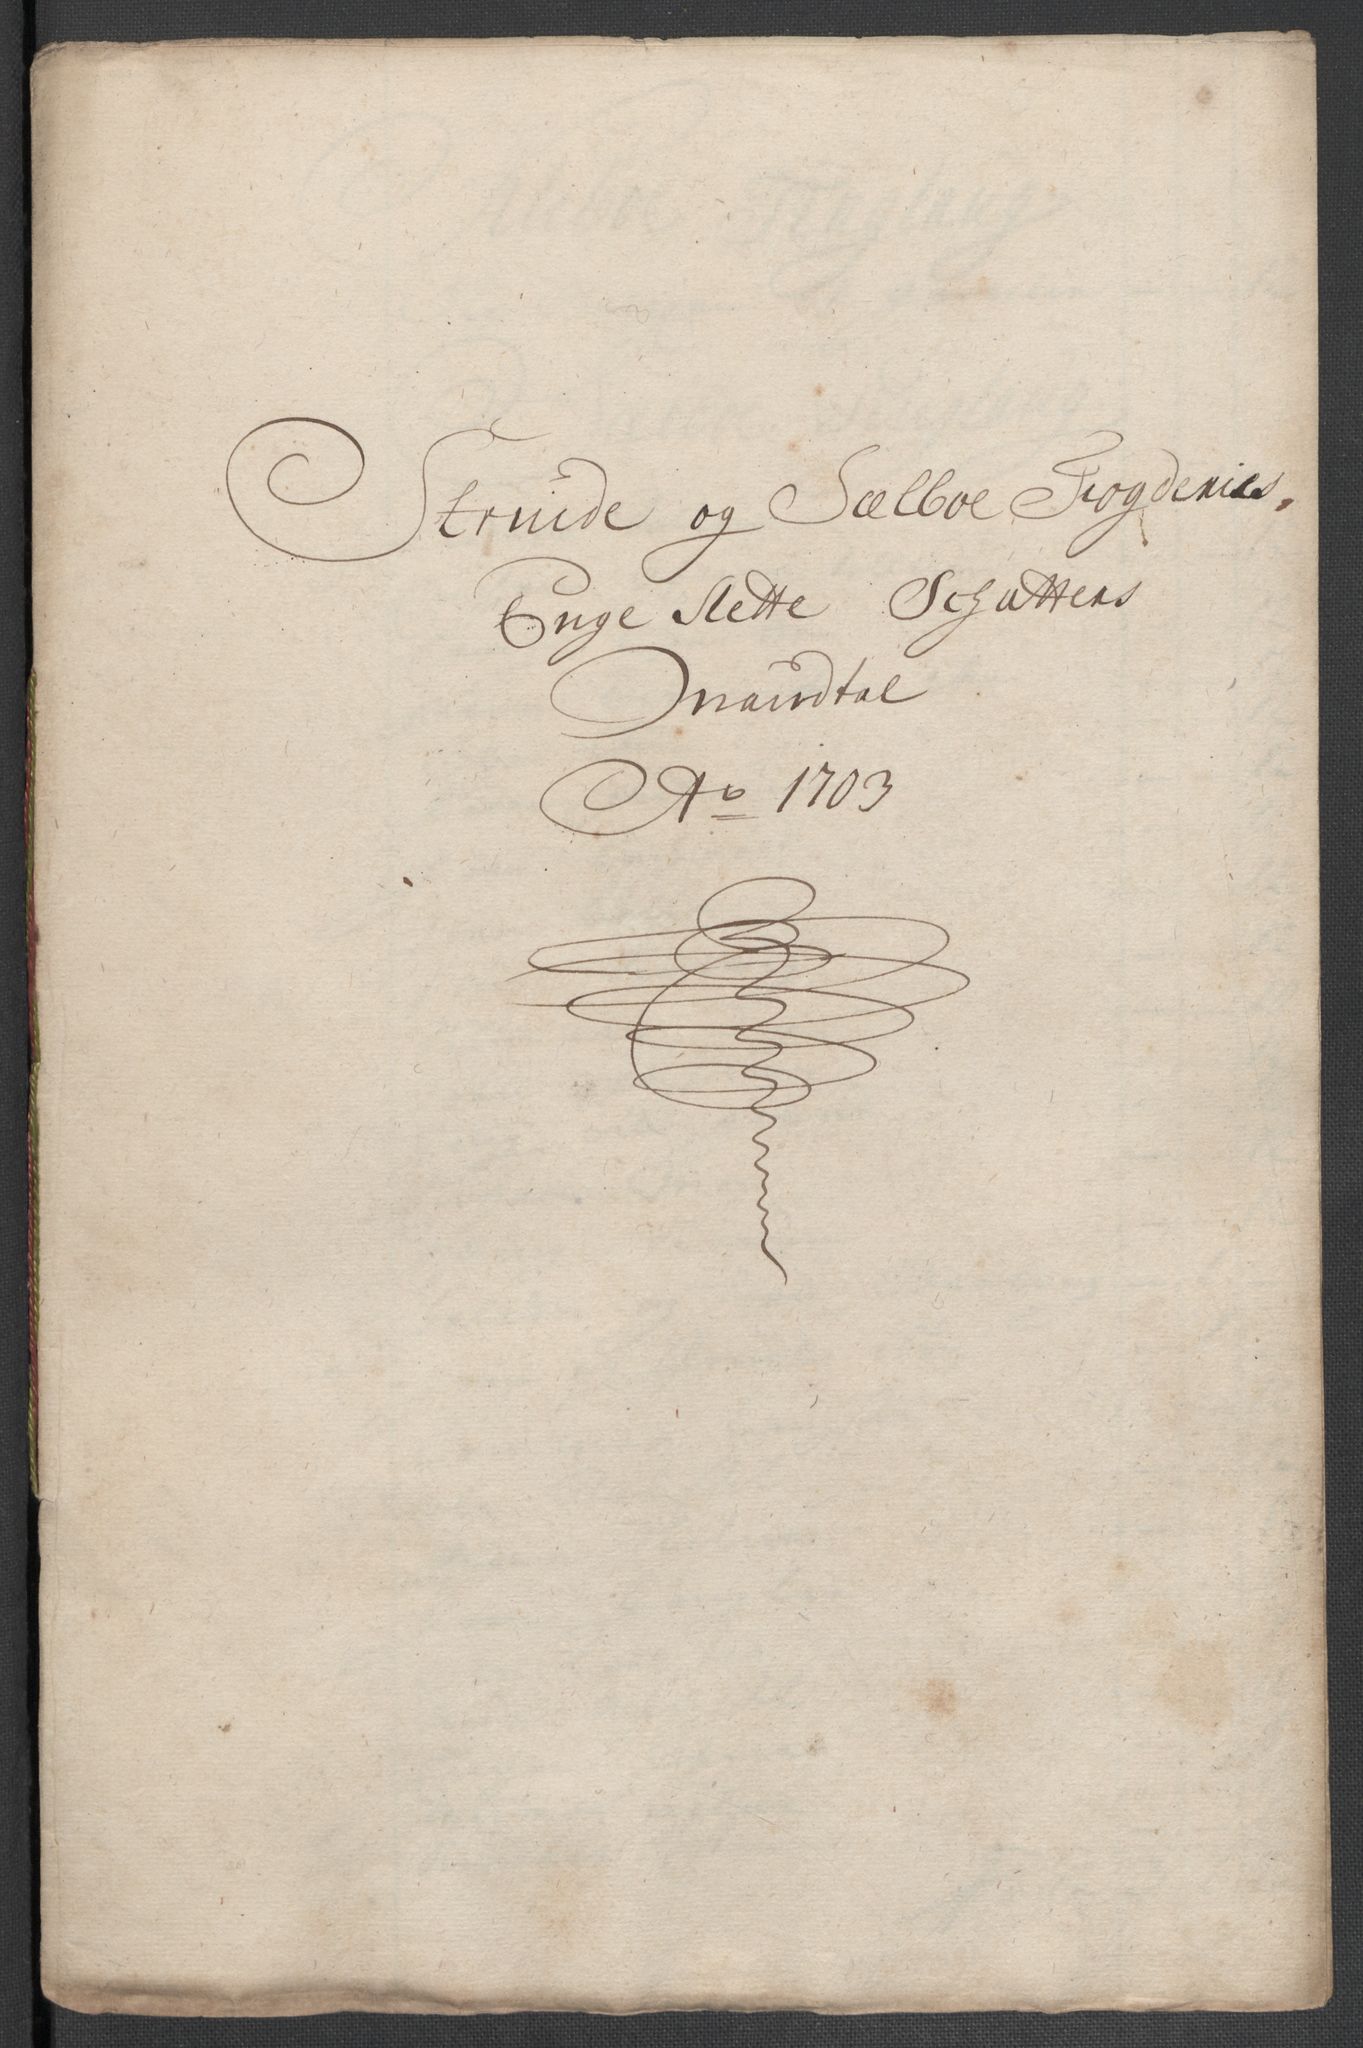 Strinde og Sælboe Fogderies
Enge Slette Schattens
Mandtal
Ao 1703